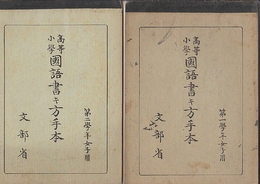 高等
小學
國語書キ方手本
第一學年女子用
文部省
高等
小學
國語書キ方手本
第二學年女子用
文部省